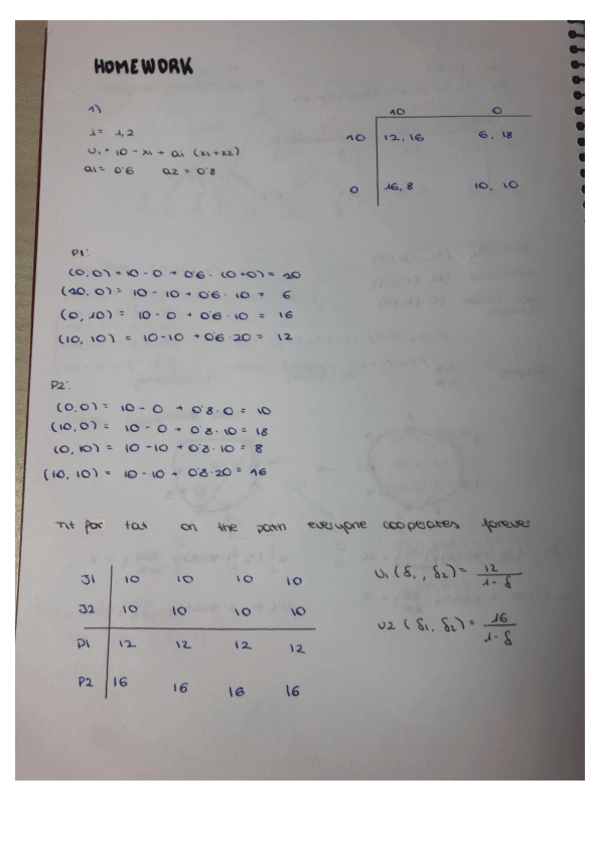 HOMEWORK
1)
i= 1,2
Ui = 10 - xi + ai (x1+x2)
a1= 0'6 a2 = 0'8
10 0
10 12, 16 6, 18
0 16, 8 10, 10
P1:
(0,0) = 10 - 0 + 0'6 · (0+0) = 10
(10, 0) = 10 - 10 + 0'6 · 10 = 6
(0, 10) = 10 - 0 + 0'6 · 10 = 16
(10, 10) = 10 - 10 + 0'6 · 20 = 12
P2:
(0,0) = 10 - 0 + 0'8 · 0 = 10
(10, 0) = 10 - 0 + 0'8 · 10 = 18
(0, 10) = 10 - 10 + 0'8 · 10 = 8
(10, 10) = 10 - 10 + 0'8 · 20 = 16
Tit for tat on the path everyone cooperates forever
J1 10 10 10 10
J2 10 10 10 10
P1 12 12 12 12
P2 16 16 16 16
U1 (δ1, δ2) = 12 / 1-δ
U2 (δ1, δ2) = 16 / 1-δ